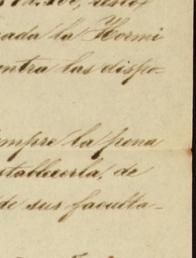 rada la Hormi
ontra las dispo-
empre la pena
stablecerla, de
de sus faculta-